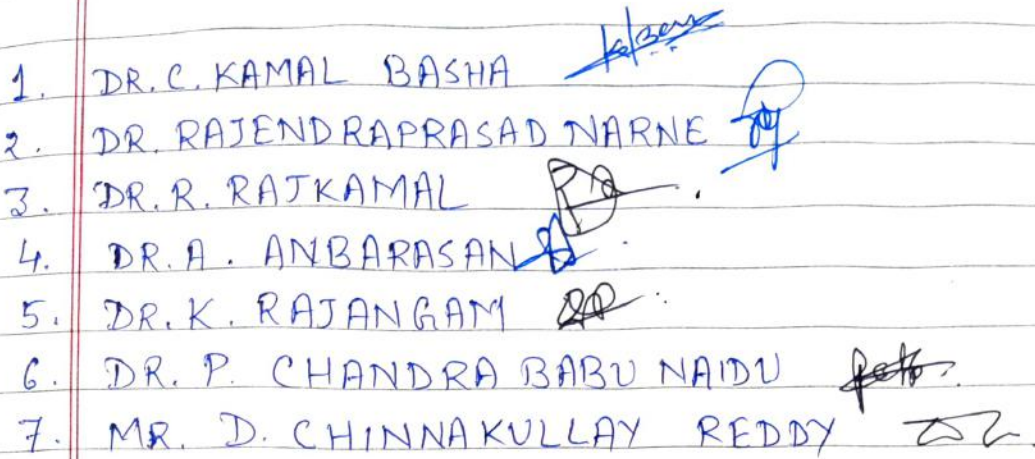 1. DR. C. KAMAL BASHA
2. DR. RAJENDRAPRASAD NARNE
3. DR. R. RAJKAMAL
4. DR. A. ANBARASAN
5. DR. K. RAJANGAM
6. DR. P. CHANDRA BABU NAIDU
7. MR. D. CHINNAKULLAY REDDY